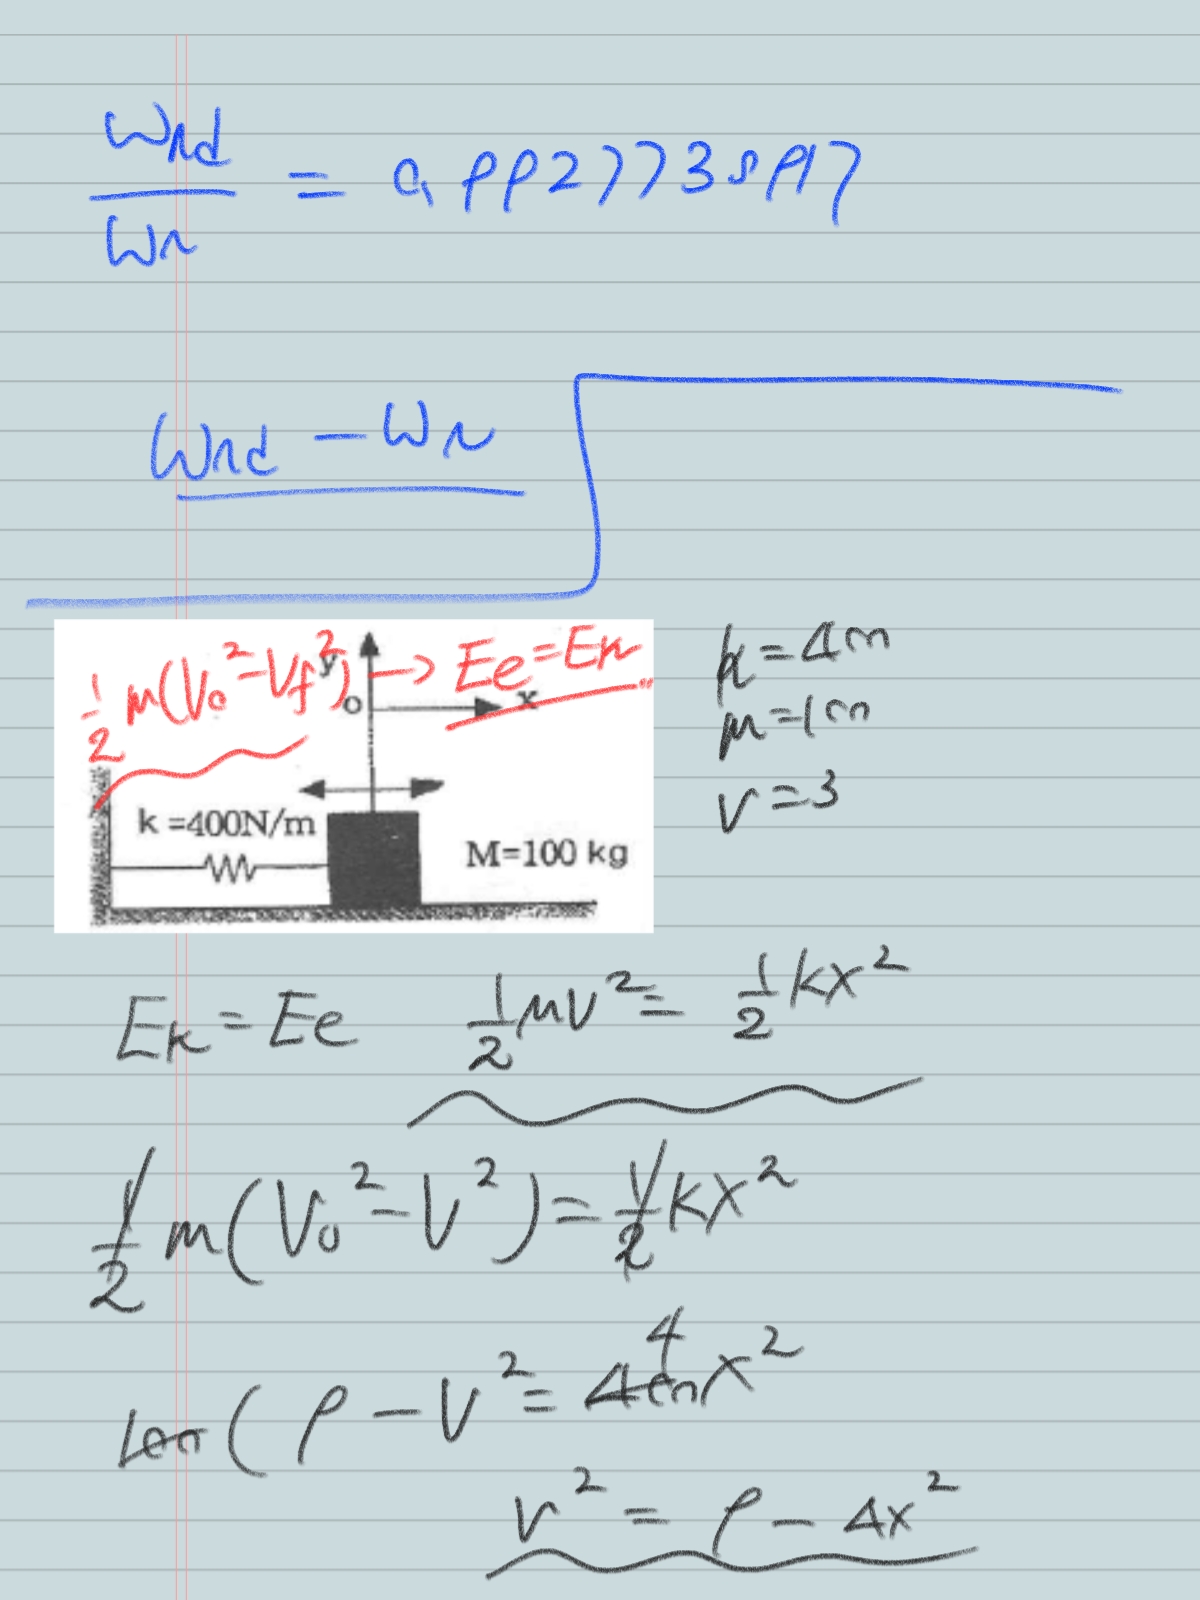 ωnd
ωn = 0.99277389197
ωnd - ωn
1/2 m(V₀² - V_f²) → Ee = Ek
y
o x
k = 400N/m
M=100 kg
k = 400
m = 100
v = 3
Ek = Ee 1/2 mv² = 1/2 kx²
1/2 m(V₀² - V²) = 1/2 kx²
4
100 (9 - V² = 400x²
v² = 9 - 4x²